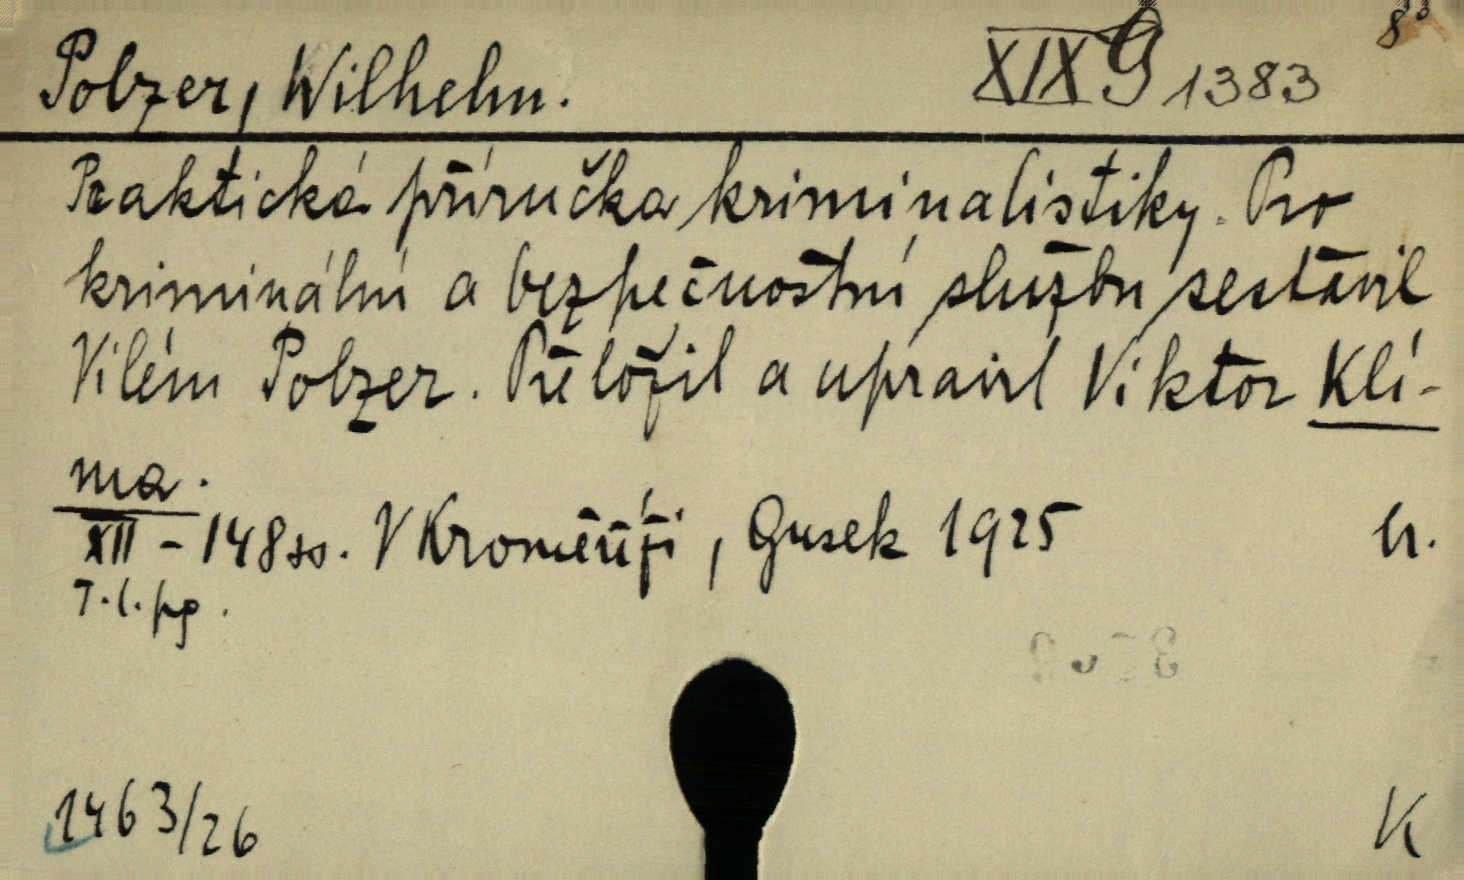 Polzer, Wilhelm. XIX G 1383 8°
Praktická příručka kriminalistiky. Pro
kriminální a bezpečnostní službu sestavil
Vilém Polzer. Přeložil a upravil Viktor Klí-
ma.
XII - 148 ss. V Kroměříži, Gusek 1925
T. l. pg.
1463/26 K